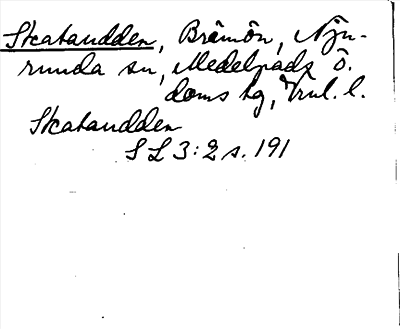 Skatan̄udden, Brämön, Nju-
runda sn, Medelpads ö.
doms hg, Vnl. l.
Skatanudden
S L 3:2 s. 191